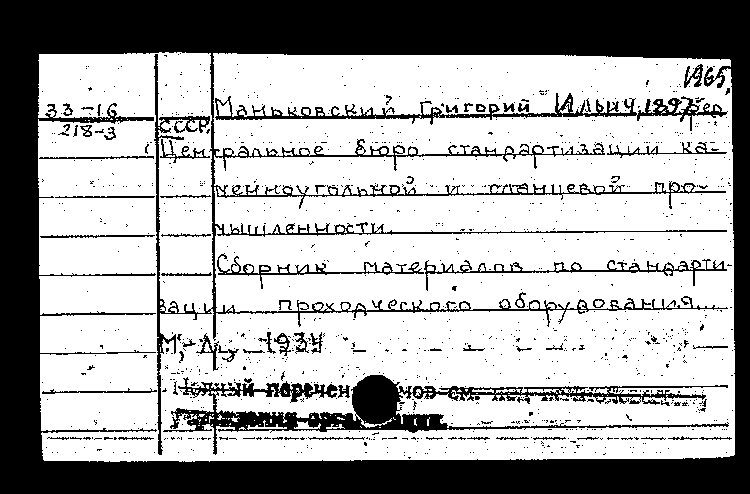 1965
33-16 Маньковский, Григорий Ильич, 1897 ред
218-3 СССР.
Центральное бюро стандартизации ка-
менноугольной и сланцевой про-
мышленности.
Сборник материалов по стандарти
зации проходческого оборудования...
М.-Л., 1934
Полный перечен мов см. под
учреждения орга